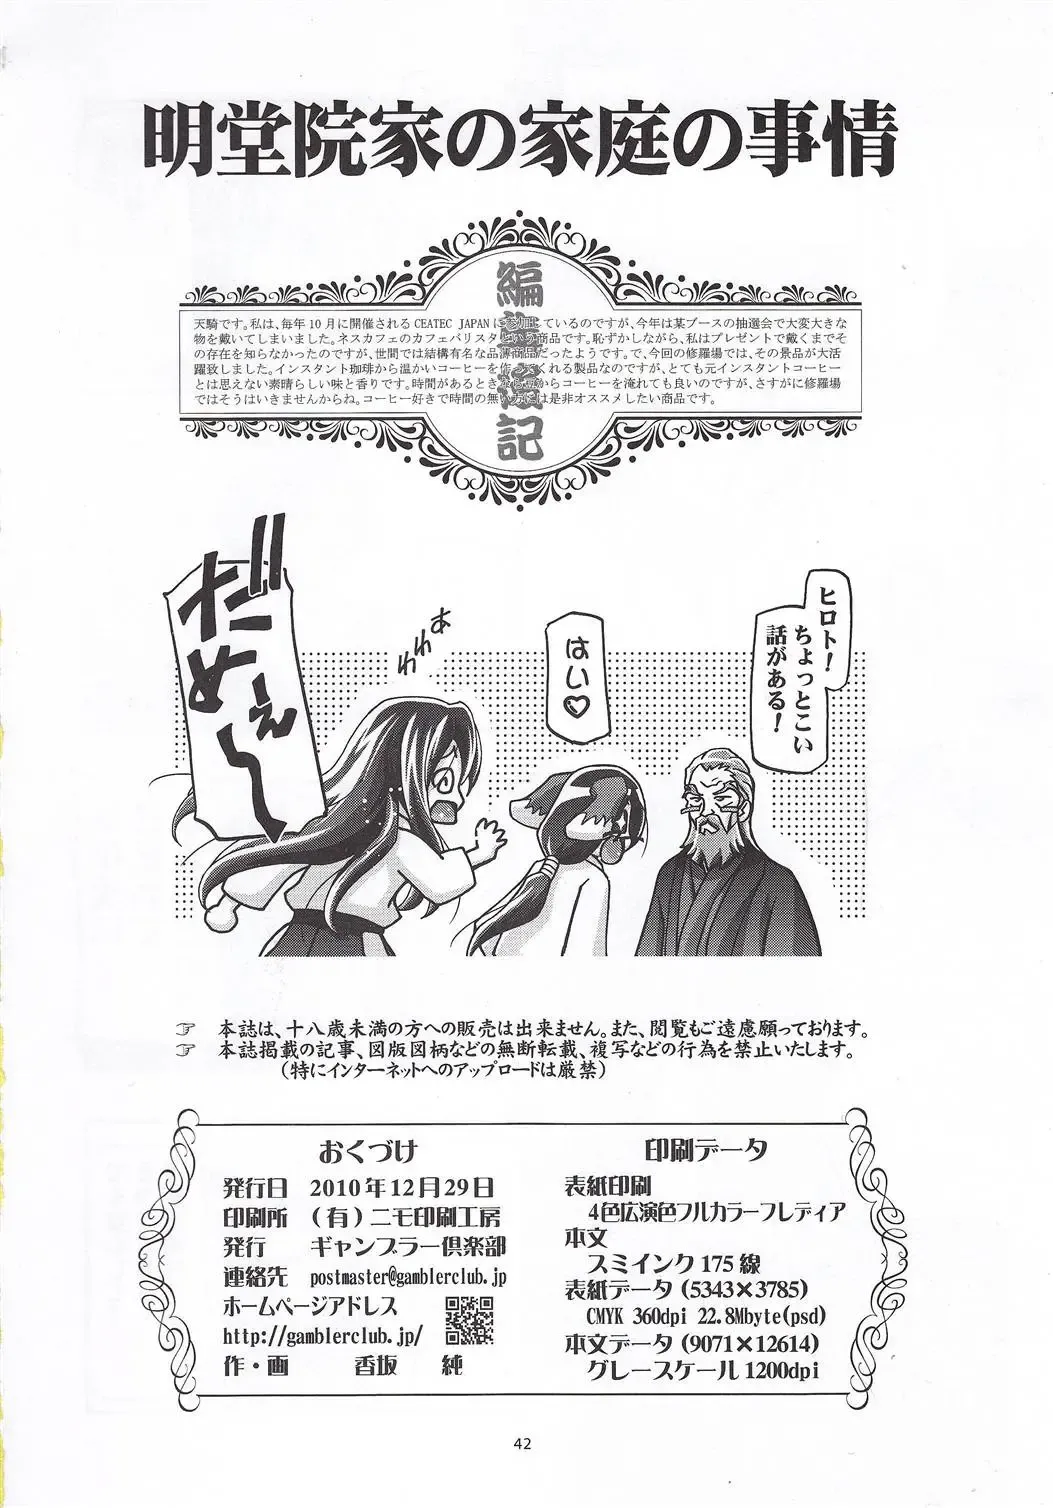 明堂院家の家庭の事情
編集後記
天騎です。私は、毎年10月に開催されるCEATEC JAPANに参加しているのですが、今年は某ブースの抽選会で大変大きな
物を戴いてしまいました。ネスカフェのカフェバリスタという商品です。恥ずかしながら、私はプレゼントで戴くまでそ
の存在を知らなかったのですが、世間では結構有名な品薄商品だったようです。で、今回の修羅場では、その景品が大活
躍致しました。インスタント珈琲から温かいコーヒーを作ってくれる製品なのですが、とても元インスタントコーヒー
とは思えない素晴らしい味と香りです。時間があるときなら豆からコーヒーを淹れても良いのですが、さすがに修羅場
ではそうはいきませんからね。コーヒー好きで時間の無い方には是非オススメしたい商品です。
ヒロト!
ちょっとこい
話がある!
はい♡
あわわ
だめぇ〜!!
☞ 本誌は、十八歳未満の方への販売は出来ません。また、閲覧もご遠慮願っております。
☞ 本誌掲載の記事、図版図柄などの無断転載、複写などの行為を禁止いたします。
(特にインターネットへのアップロードは厳禁)
おくづけ
発行日 2010年12月29日
印刷所 (有)ニモ印刷工房
発行 ギャンブラー倶楽部
連絡先 postmaster@gamblerclub.jp
ホームページアドレス
http://gamblerclub.jp/
作・画 香坂 純
印刷データ
表紙印刷
4色広演色フルカラーフレディア
本文
スミインク175線
表紙データ(5343×3785)
CMYK 360dpi 22.8Mbyte(psd)
本文データ(9071×12614)
グレースケール1200dpi
42